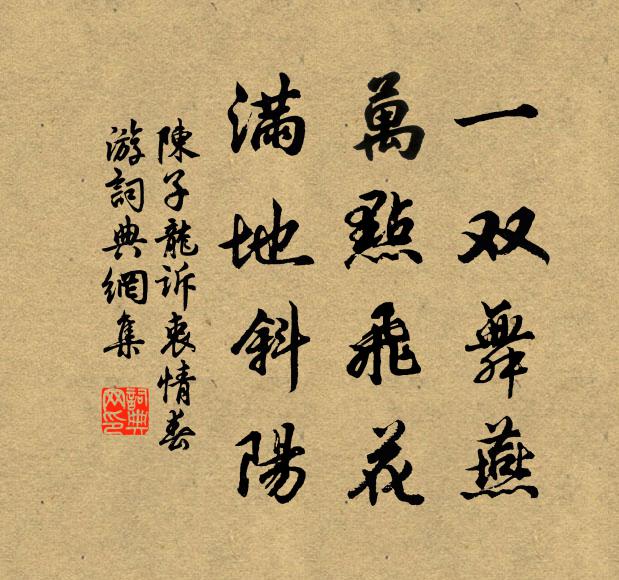 一双舞燕
萬點飛花
滿地斜陽
陳子龍訴衷情春
游詞典網集
詞典网印